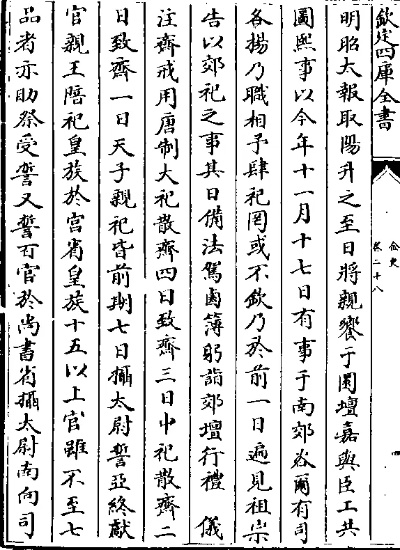 欽定四庫全書
金史
卷二十八
明昭大報取陽升之至日將親饗于圜壇嘉與臣工共
圖熙事以今年十一月十七日有事于南郊咨爾有司
各揚乃職相予肆祀罔或不欽乃於前一日遍見祖宗
告以郊祀之事其日備法駕鹵簿躬詣郊壇行禮 儀
注齋戒用唐制大祀散齋四日致齋三日中祀散齋二
日致齋一日天子親祀皆前期七日攝太尉誓亞終獻
官親王陪祀皇族於宫省皇族十五以上官雖不至七
品者亦助祭受誓又誓百官於尚書省攝太尉南向司